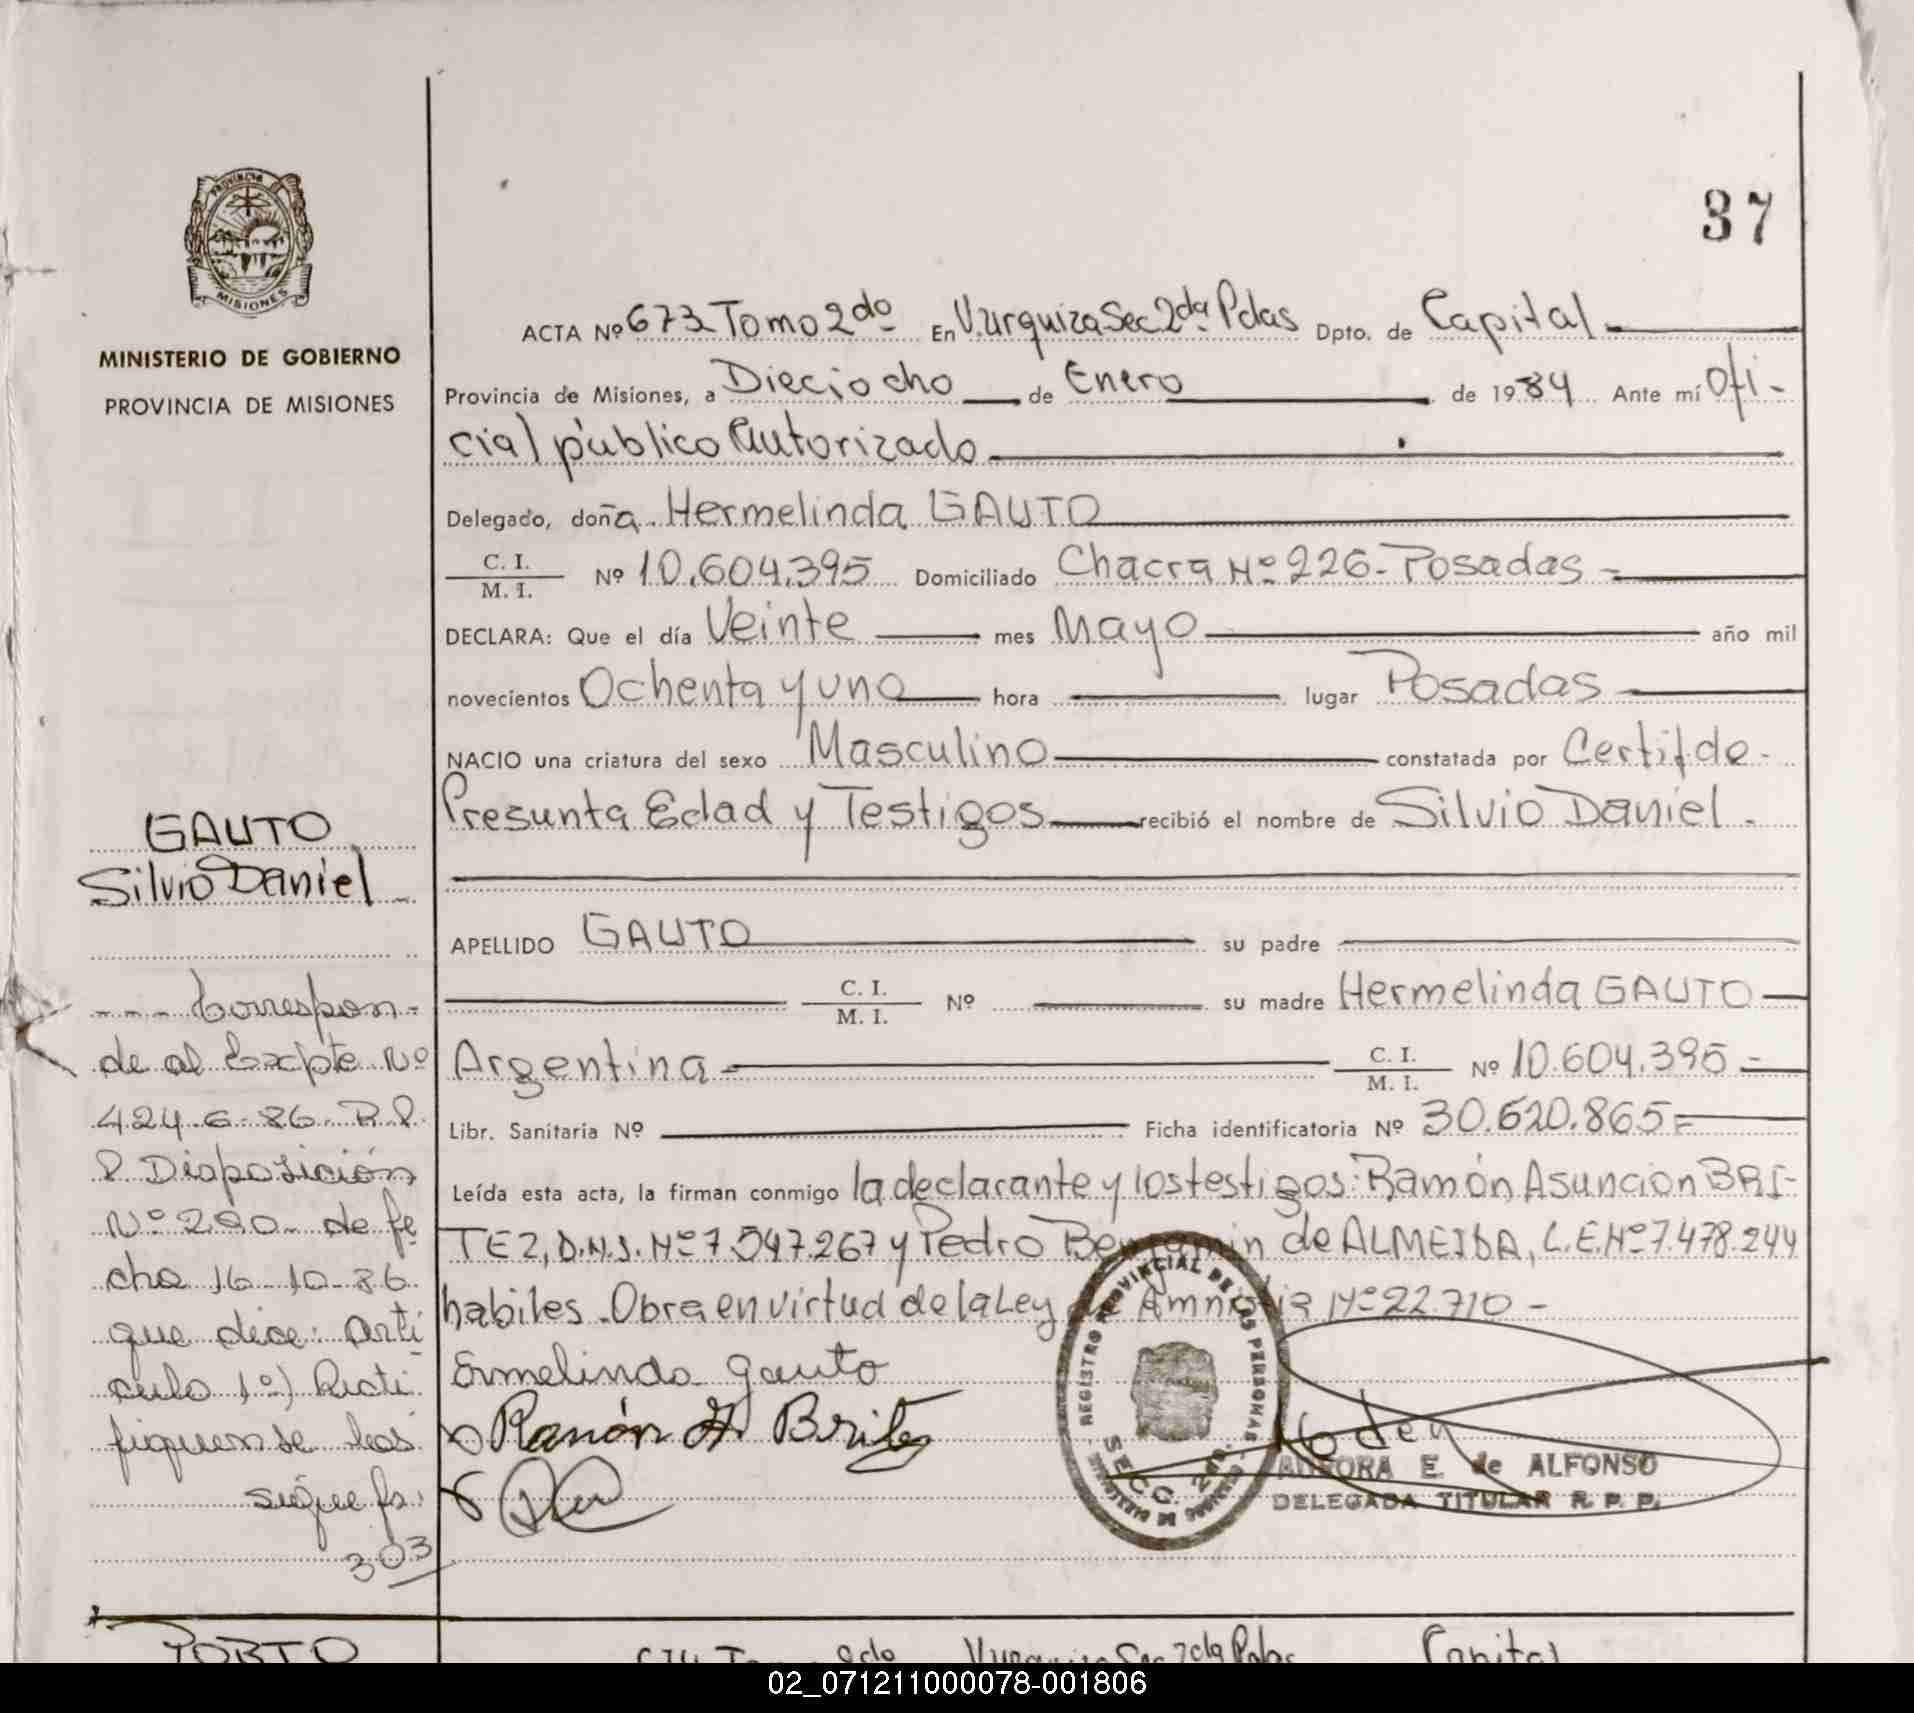 37
ACTA Nº 673 Tomo 2do En V. Urquiza Sec. 2da Pdas Dpto. de Capital
MINISTERIO DE GOBIERNO
PROVINCIA DE MISIONES
Provincia de Misiones, a Dieciocho de Enero de 1984 Ante mí Ofi-
cial público Autorizado
Delegado, doña Hermelinda GAUTO
C. I.
M. I. Nº 10.604.395 Domiciliado Chacra Nº 226 - Posadas
DECLARA: Que el día Veinte mes Mayo año mil
novecientos Ochenta y uno hora lugar Posadas
NACIO una criatura del sexo Masculino constatada por Certif de
Presunta Edad y Testigos recibió el nombre de Silvio Daniel
APELLIDO GAUTO su padre
C. I.
M. I. Nº su madre Hermelinda GAUTO
Argentina C. I.
M. I. Nº 10.604.395
Libr. Sanitaria Nº Ficha identificatoria Nº 30.620.865
Leída esta acta, la firman conmigo la declarante y los testigos: Ramón Asunción BRI-
TEZ, D.N.I. Nº 7.547.267 y Pedro Benjamin de ALMEIDA, L.E. Nº 7.478.244
habiles. Obra en virtud de la Ley de Amnistia Nº 22.710 -
Ermelinda Gauto
Ramón A. Britez
REGISTRO PROVINCIAL DE LAS PERSONAS
SECC. 2da.
AURORA E. de ALFONSO
DELEGADA TITULAR R. P. P.
GAUTO
Silvio Daniel
--- Correspon-
de al Expte Nº
424-G-86- R.P.
P. Disposición
Nº 290- de fe
cha 16-10-86
que dice: Arti
culo 1º) Recti
fiquense los
sigue fs:
303
PORTO
674 Tomo 2do V. Urquiza Sec 2da Pdas Capital
02_071211000078-001806